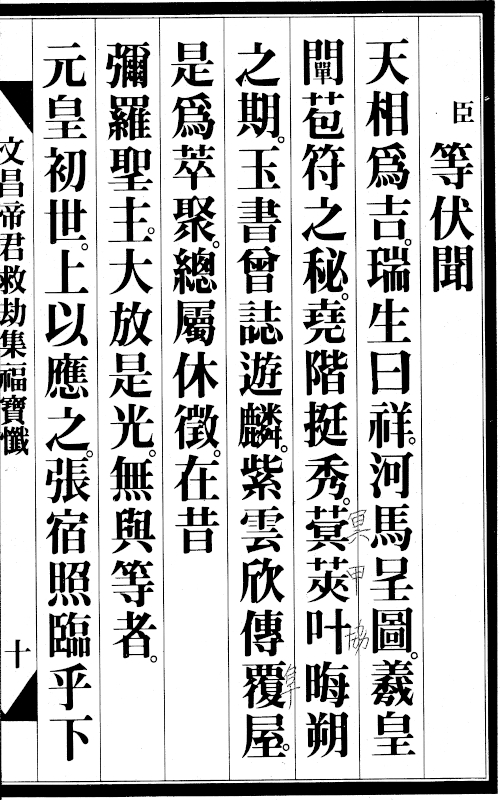 臣等伏聞
天相爲吉。瑞生曰祥。河馬呈圖。羲皇
闡苞符之秘。堯階挺秀。蓂莢叶晦朔
之期。玉書曾誌遊麟。紫雲欣傳覆屋。
是爲萃聚。總屬休徵。在昔
彌羅聖主。大放是光。無與等者。
元皇初世。上以應之。張宿照臨乎下
文昌帝君救劫集福寶懺
十